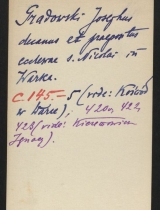 Gradowski Josephus
decanus et praepositus
ecclesiae s. Nicolai in
Warka.
C. 145.—5 (vide: Kościół
w Warce); 420v, 422,
428 (vide:
Ignacy).